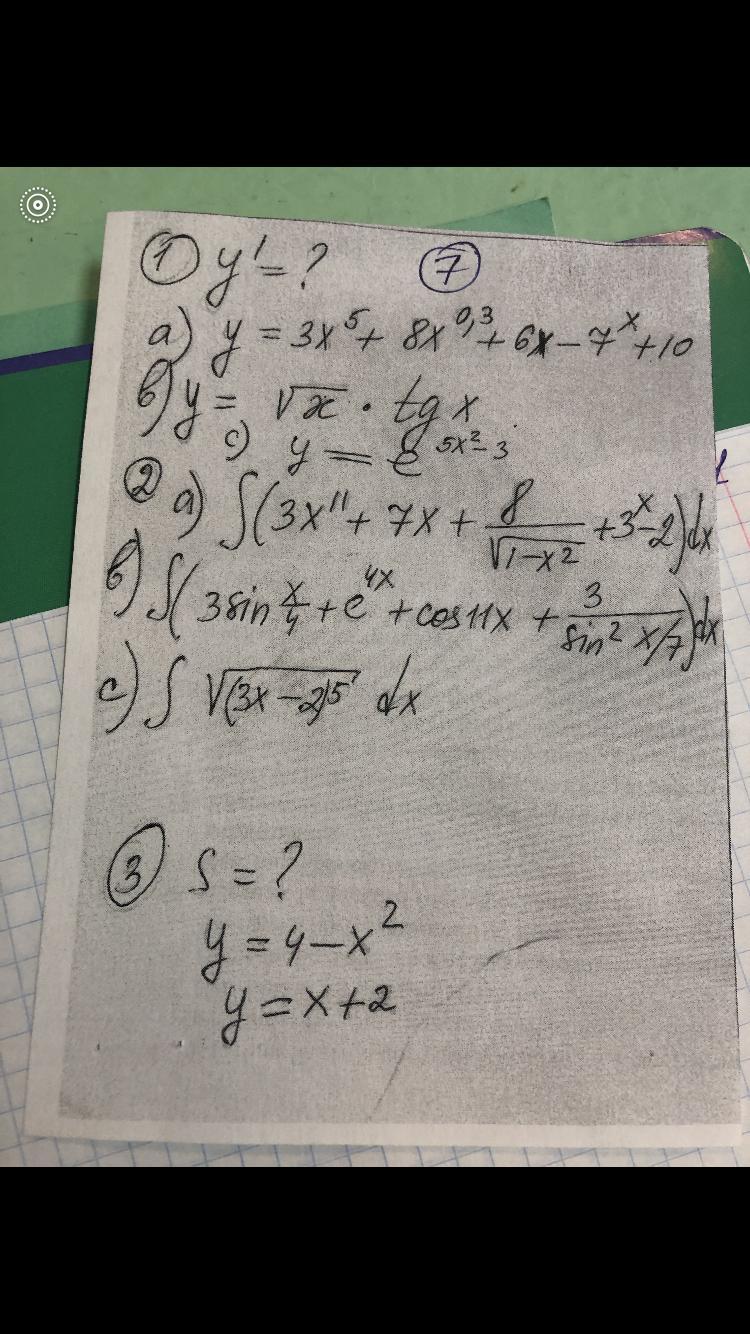 ① y' = ? ⑦
a) y = 3x⁵ + 8x⁰,³ + 6x − 7ˣ + 10
в) y = √x · tg x
c) y = e^(5x² − 3)
② a) ∫(3x¹¹ + 7x + 8/√(1−x²) + 3ˣ − 2)dx
в) ∫(3 sin x/4 + e⁴ˣ + cos 11x + 3/(sin² x/7))dx
c) ∫ √((3x − 2)⁵) dx
③ S = ?
y = 4 − x²
y = x + 2